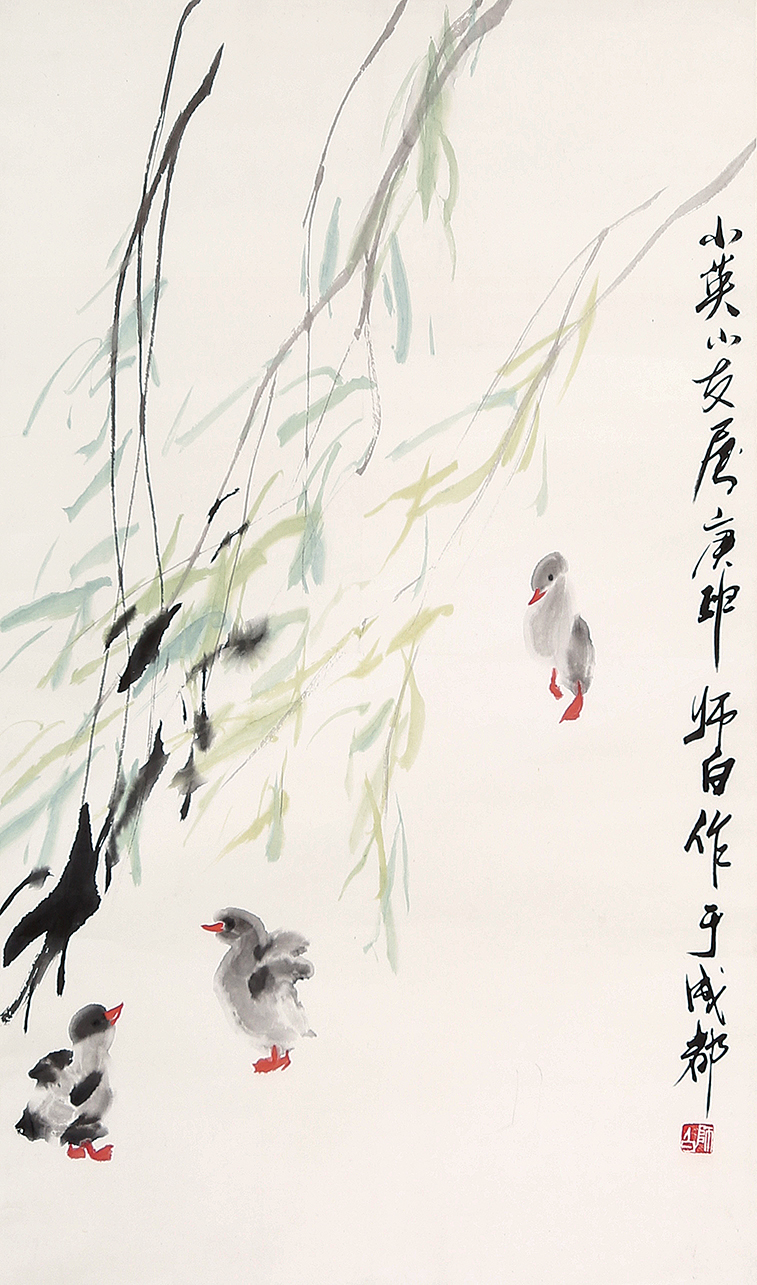 小英小友属庚申 师白作于成都
师白